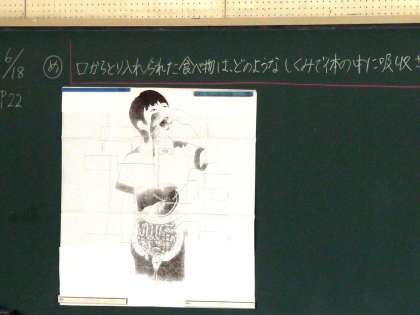 6/18
P22
め 口からとり入れられた食べ物は、どのようなしくみで体の中に吸収さ